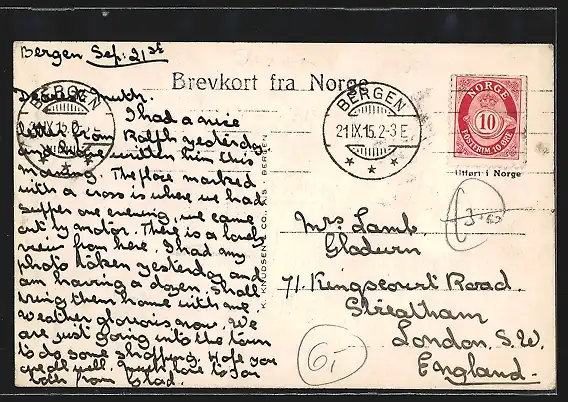 Bergen Sep. 21st
Brevkort fra Norge
Dearest
I had a nice
letter from Ralph yesterday
and have written him this
morning. The place marked
with a cross is where we had
supper one evening, we came
out by motor. There is a lovely
view from here. I had my
photo taken yesterday and
am having a dozen. Shall
bring them home with me
weather glorious now. We
are just going into the town
to do some shopping. Hope you
are all well. much love to you
both from Glad.
BERGEN
BERGEN
21 IX 15. 2-3 E
NORGE
10
POSTFRIM. 10 ØRE
Utført i Norge
K. KNUDSEN & CO., K.S. BERGEN
Mrs Lamb.
Gladwern
71 Kingscourt Road.
Streatham
London. S.W.
England.
6,-